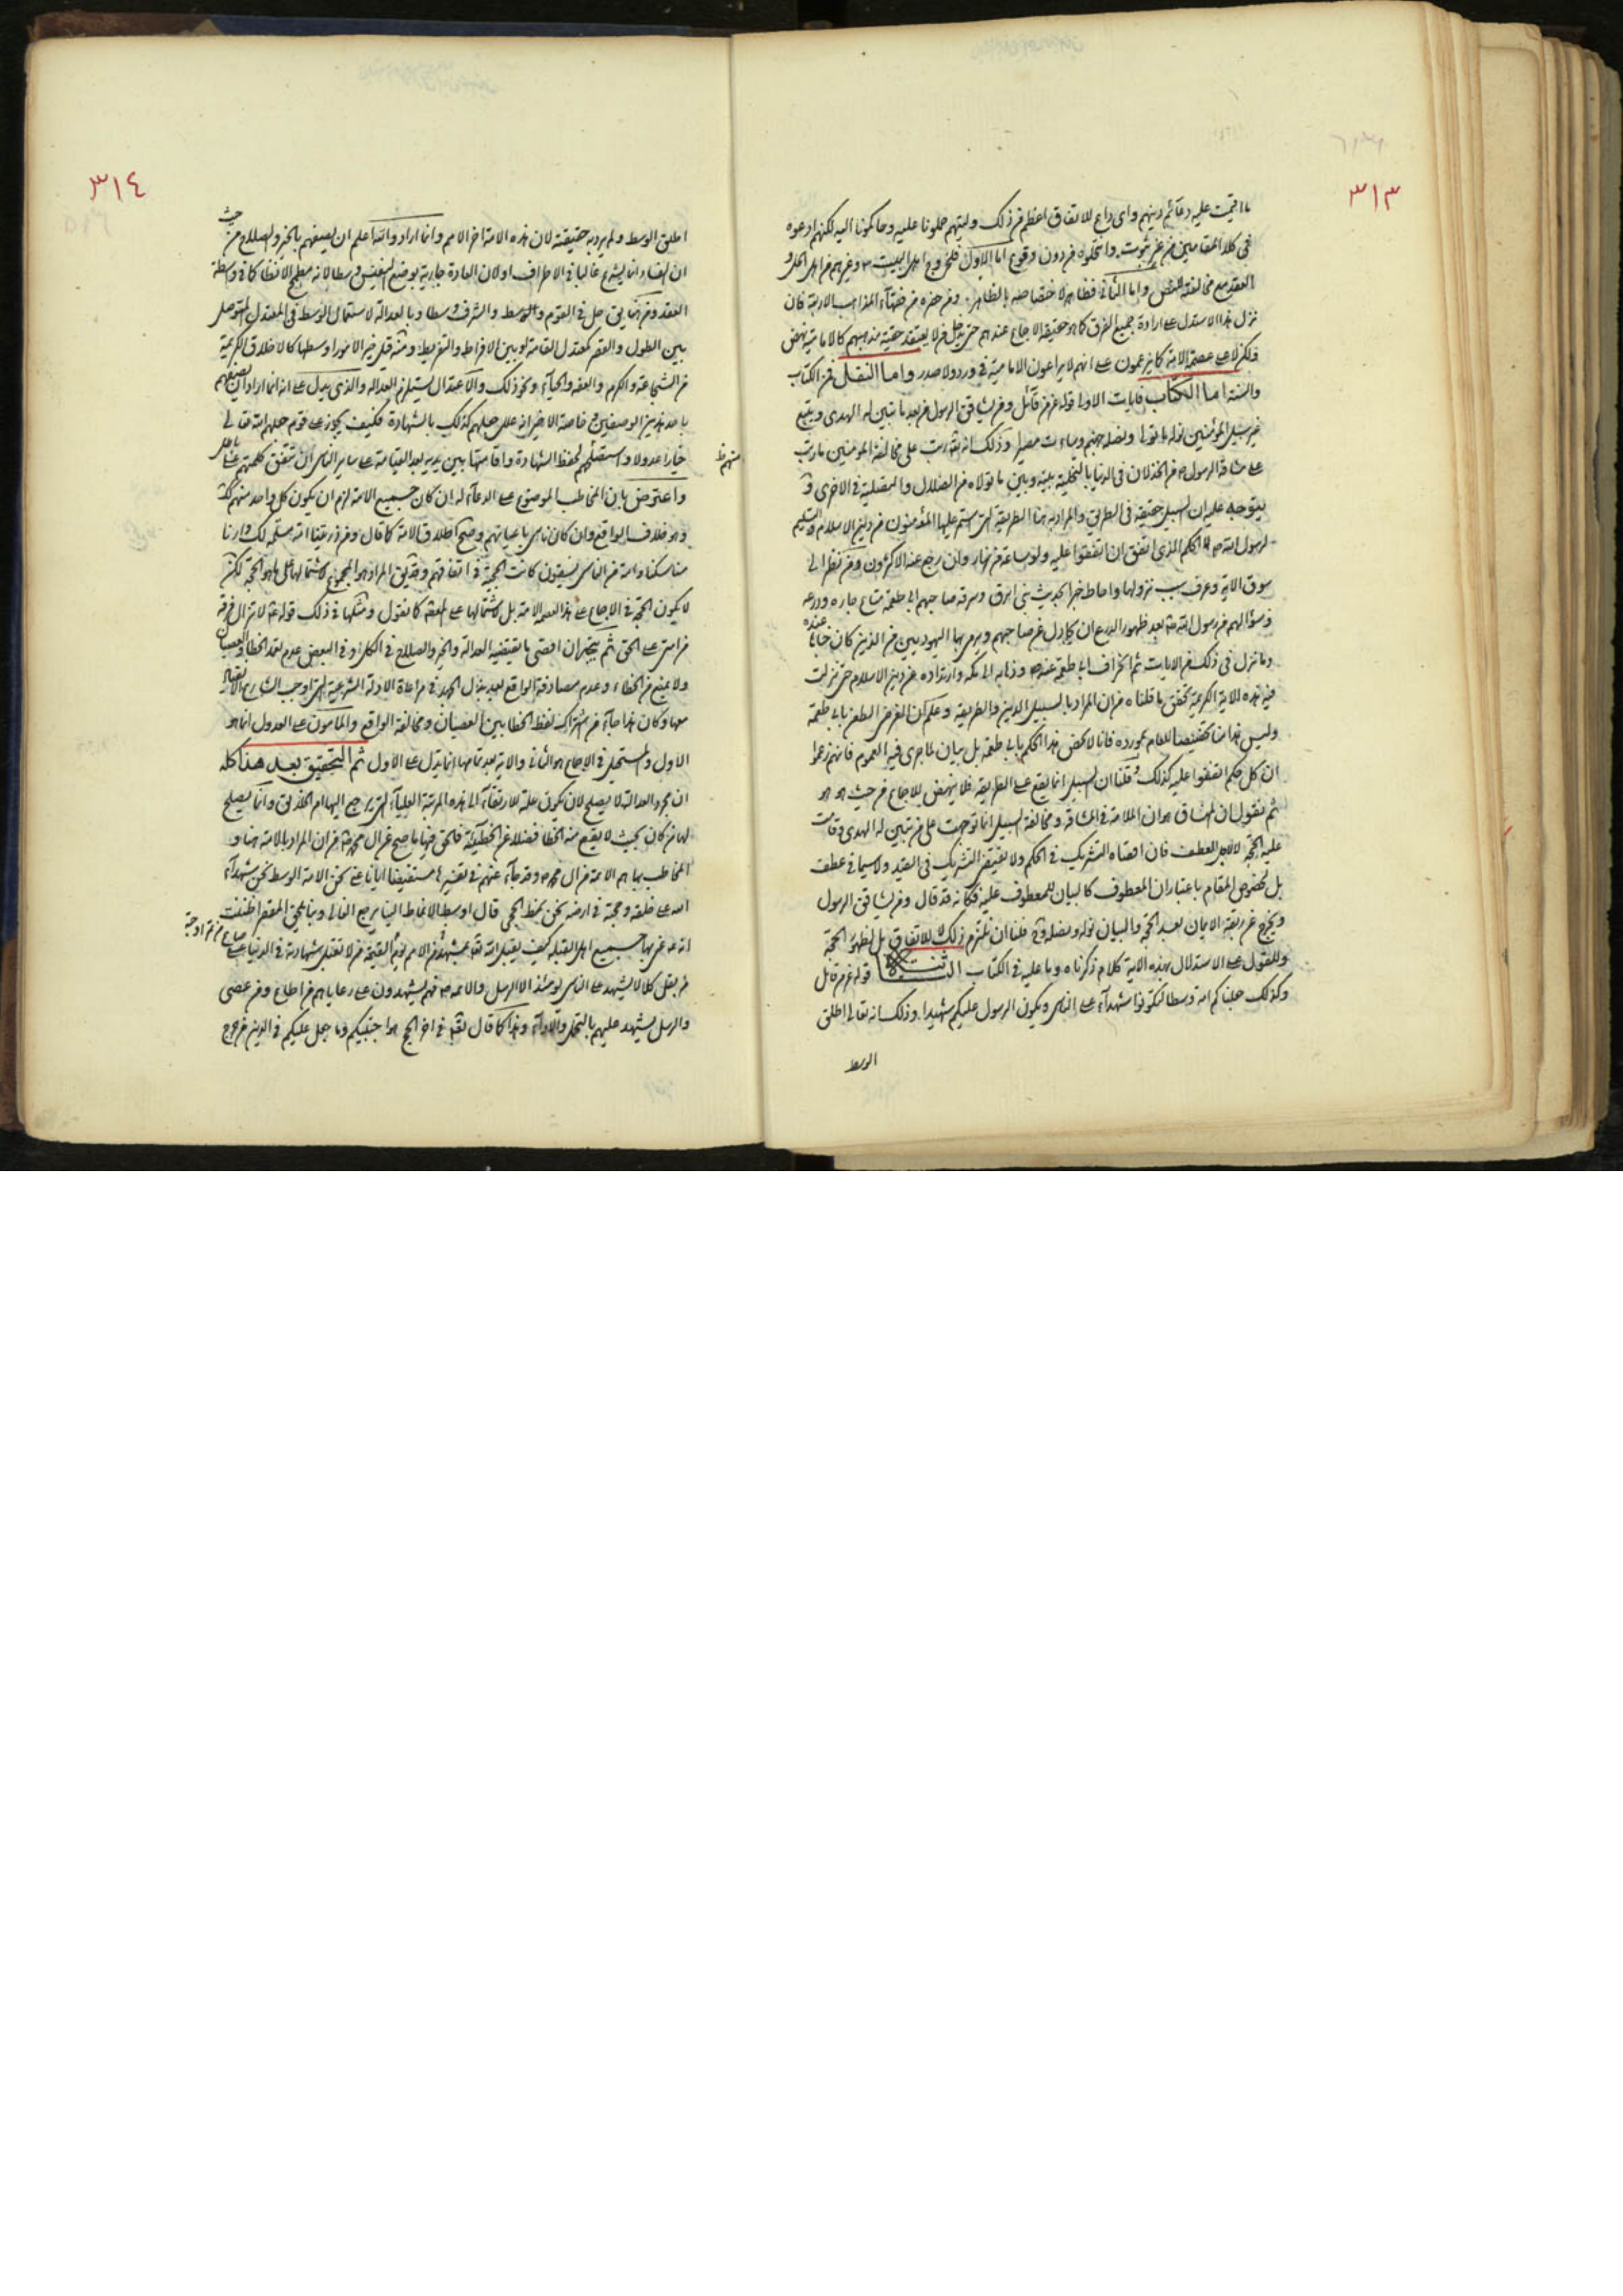 ٣١٣
ما اقيمت عليه دعائم دينهم واى داع للاتفاق اعظم من ذلك وليتهم حلونا عليه وحاكمونا اليه لكنهم ادعوه
فى كلا المقامين من غير ثبوت وانتحلوه من دون وقوع اما الاول فلخروج اهل البيت ع وغيرهم من اهل الحل و
العقد مع مخالفة البعض واما الثانى فظاهر لاختصاصه بالظاهر ومن حضره من فقهآء المذاهب الاربعة فان
نزل هذا الاستدل على ارادة جميع الفرق كما هو حقيقة الاجماع عندهم حتى يدخل من لا يعتقد حقية مذهبهم كالامامية نهض
ولكن لا على عصمة الامة كما يزعمون على انهم لا يراعون الامامية فى ورد ولا صدر واما النقل فمن الكتاب
والسنة اما الكتاب فايات الاولى قوله عز من قآئل ومن يشاقق الرسول من بعد ما تبين له الهدى ويتبع
غير سبيل المؤمنين نوله ما تولى ونصله جهنم وساءت مصيرا وذلك انه تعه رتب على مخالفة المؤمنين ما رتب
على مشاقة الرسول ص من الخذلان فى الدنيا بالتخلية بينه وبين ما تولاه من الضلال والتصلية فى الاخرى و
يتوجه عليه ان السبيل حقيقة فى الطريق والمراد به هنا الطريقة التى استمر عليها المؤمنون من دين الاسلام والتسليم
لرسول الله ص لا الحكم الذى اتفق ان اتفقوا عليه ولو ساعة من نهار وان رجع عنه الاكثرون ومن نظر الى
سوق الاية وعرف سبب نزولها واحاط خبرا بحديث بنى ابرق وسرقة صاحبهم ابى طعمة متاع جاره ودرعه
وسؤالهم من رسول الله ص بعد ظهور الدرع ان يجادل عن صاحبهم ويرمى بها اليهود بين من الذين كان خباها عنده
وما نزل فى ذلك من الايات ثم انحراف ابى طعمة عنه ص وذهابه الى مكة وارتداده عن دين الاسلام حتى نزلت
فيه هذه الاية الكريمة تحقق ما قلناه من ان المراد بالسبيل الدين والطريقة وعلم ان الغرض الطعن بابى طعمة
وليس هذا منا تخصيصا للعام بمورده فانا لا نخص هذا الحكم بابى طعمة بل بيان لما جرى فيه العموم فانهم زعموا
ان كل حكم اتفقوا عليه كذلك وقلنا ان السبيل انما يقع على الطريقة فلا ينهض للاجماع من حيث هو هو
ثم نقول ان المشاق هو ان الملامة فى المشاقة ومخالفة السبيل انما توجهت على من تبين له الهدى وقامت
عليه الحجة لا لاجل العطف فان اقصاه التشريك فى الحكم ولا يقتضى التشريك فى القيد ولا سيما فى عطف
بل لخصوص المقام باعتبار ان المعطوف كالبيان للمعطوف عليه فكانه قد قال ومن يشاقق الرسول
ويخرج عن ربقة الايمان بعد الحجة والبيان نوله ونصله وح فلنا ان نلتزم ذلك لا للاتفاق بل لظهور الحجة
وللقول على الاستدلال بهذه الاية كلام ذكرناه وما عليه فى الكتاب الثانية قوله عز من قائل
وكذلك جعلناكم امة وسطا لتكونوا شهدآء على الناس ويكون الرسول عليكم شهيدا وذلك انه تعالى اطلق
الوسط
٣١٤
اطلق الوسط ولم يرد به حقيقته لان هذه الامة اخر الامم وانما اراد والله اعلم ان يصفهم بالخير والصلاح من حيث
ان الفساد انما يشرع غالبا فى الاطراف اولان العادة جارية بوضع النفيس وسطا لانه مطمح الانظار كما فى واسطة
العقد ومن ثم يق حل فى القوم والوسط والشرف وسطا وبالعدالة لاستعمال الوسط فى المعتدل المتوصل
بين الطول والقصر كمعتدل القامة او بين الافراط والتفريط ومنه قيل خير الامور اوسطها كالاخلاق الكريمة
من الشجاعة والكرم والعفة والحيآء ونحو ذلك والاعتدال يستلزم العدالة والذى يدل على انه انما اراد ان يصفهم
باحد هذين الوصفين وخاصة الاخير انه علل جعلهم كذلك بالشهادة فكيف يجوز على قوم جعلهم الله تعالى
خيارا عدولا واستقصلهم لحفظ الشهادة واقامتها بين يديه بعد القيامة على ساير الناس ان تتفق كلمتهم على باطل
واعترض بان المخاطب الموضوع على الدعآء له ان كان جميع الامة لزم ان يكون كل واحد منهم كك
وهو خلاف الواقع وان كان ناس باعيانهم وصح اطلاق الامة كما قال ومن ذريتنا امة مسلمة لك وارنا
مناسكنا وامة من الناس يسقون كانت الحجية فى اتفاقهم وتصديق المراد هو المجموع لاشتمالها على ما هو الحجة لكن
لا يكون الحجة فى الاجماع على هذا لعصمة الامة بل لاشتمالها على العصمة كما نقول ومثلها فى ذلك قوله ع لا تزال فرقة
من امتى على الحق ثم يتجه ان اقصى ما يقتضيه العدالة والخير والصلاح فى الكل او فى البعض عدم تعمد الخطا والعصيان
ولا يمنع من الخطاء وعدم مصادفة الواقع بعد بذل الجهد فى مراعاة الادلة الشرعية التى اوجب الشارع الانقياد
معها وكان هذا جآء من اشتراك لفظ الخطا بين العصيان ومخالفة الواقع والمامون على العدول انما هو
الاول والمستحيل فى الاجماع هو الثانى والاية بعد تمامها انما يدل على الاول ثم التحقيق بعد هذا كله
ان مجرد العدالة لا يصلح لان يكون علة للارتقآء الى هذه المرتبة العليآء التى يرجع اليها امر الخلق وانما يصلح
لها من كان بحيث لا يقع منه الخطا فضلا عن الخطيئة فالحق فيها ما صح عن ال محمد ص من ان المراد بالامة هنا و
المخاطب بها هم الائمة من ال محمد ص وقد جآء عنهم فى تفسيرها مستفيضا ايانا عنى نحن الامة الوسط نحن شهدآء
الله على خلقه وحجته فى ارضه نحن نمط الحجى قال اوسط الانماط الينا يرجع الغالى وبنا يلحق المقصر اظننت
انه عنى بها جميع اهل القبلة كيف يقبل الله تعه بشهادة من الامم يوم القيمة من لا تقبل شهادته فى الدنيا على صاع من تمر او حبة
من بقل كلا لا يشهد على الناس يومئذ الا الرسل والائمة ع فهم يشهدون على رعاياهم من اطاع ومن عصى
والرسل يشهد عليهم بالتحمل والادآء وهذا كما قال تعه فى اخر الحج هو اجتبيكم وما جعل عليكم فى الدين من حرج